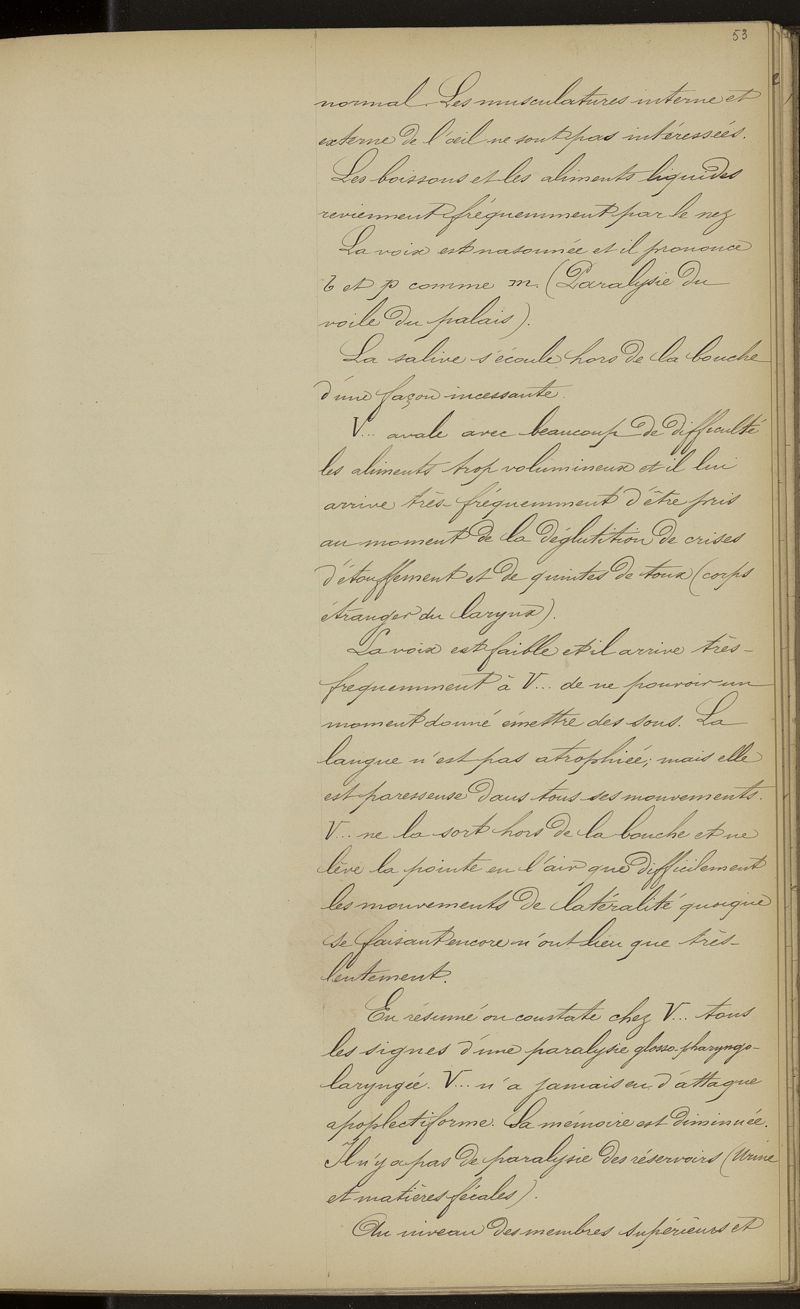 53
normal. Les musculatures interne et
externe de l'œil ne sont pas intéressées.
Les boissons et les aliments liquides
reviennent fréquemment par le nez
La voix est nasonnée et il prononce
b et p comme m. (Paralysie du
voile du palais).
La salive s'écoule hors de la bouche
d'une façon incessante.
V... avale avec beaucoup de difficulté
les aliments trop volumineux et il lui
arrive très-fréquemment d'être pris
au moment de la déglutition de crises
d'étouffement et de quintes de toux (corps
étranger du larynx).
La voix est faible et il arrive très-
frequemment à V... de ne pouvoir un
moment donné émettre des sons. La
langue n'est pas atrophiée; mais elle
est paresseuse dans tous ses mouvements.
V... ne la sort hors de la bouche et ne
lève la pointe en l'air que difficilement
les mouvements de latéralité quoique
se faisant encore n'ont lieu que très-
lentement.
En résumé on constate chez V... tous
les signes d'une paralysie glosso-pharyngo-
laryngée. V... n'a jamais eu d'attaque
apoplectiforme. Sa mémoire est diminuée.
Il n'y a pas de paralysie des réservoirs (Urine
et matières fécales).
Au niveau des membres supérieurs et